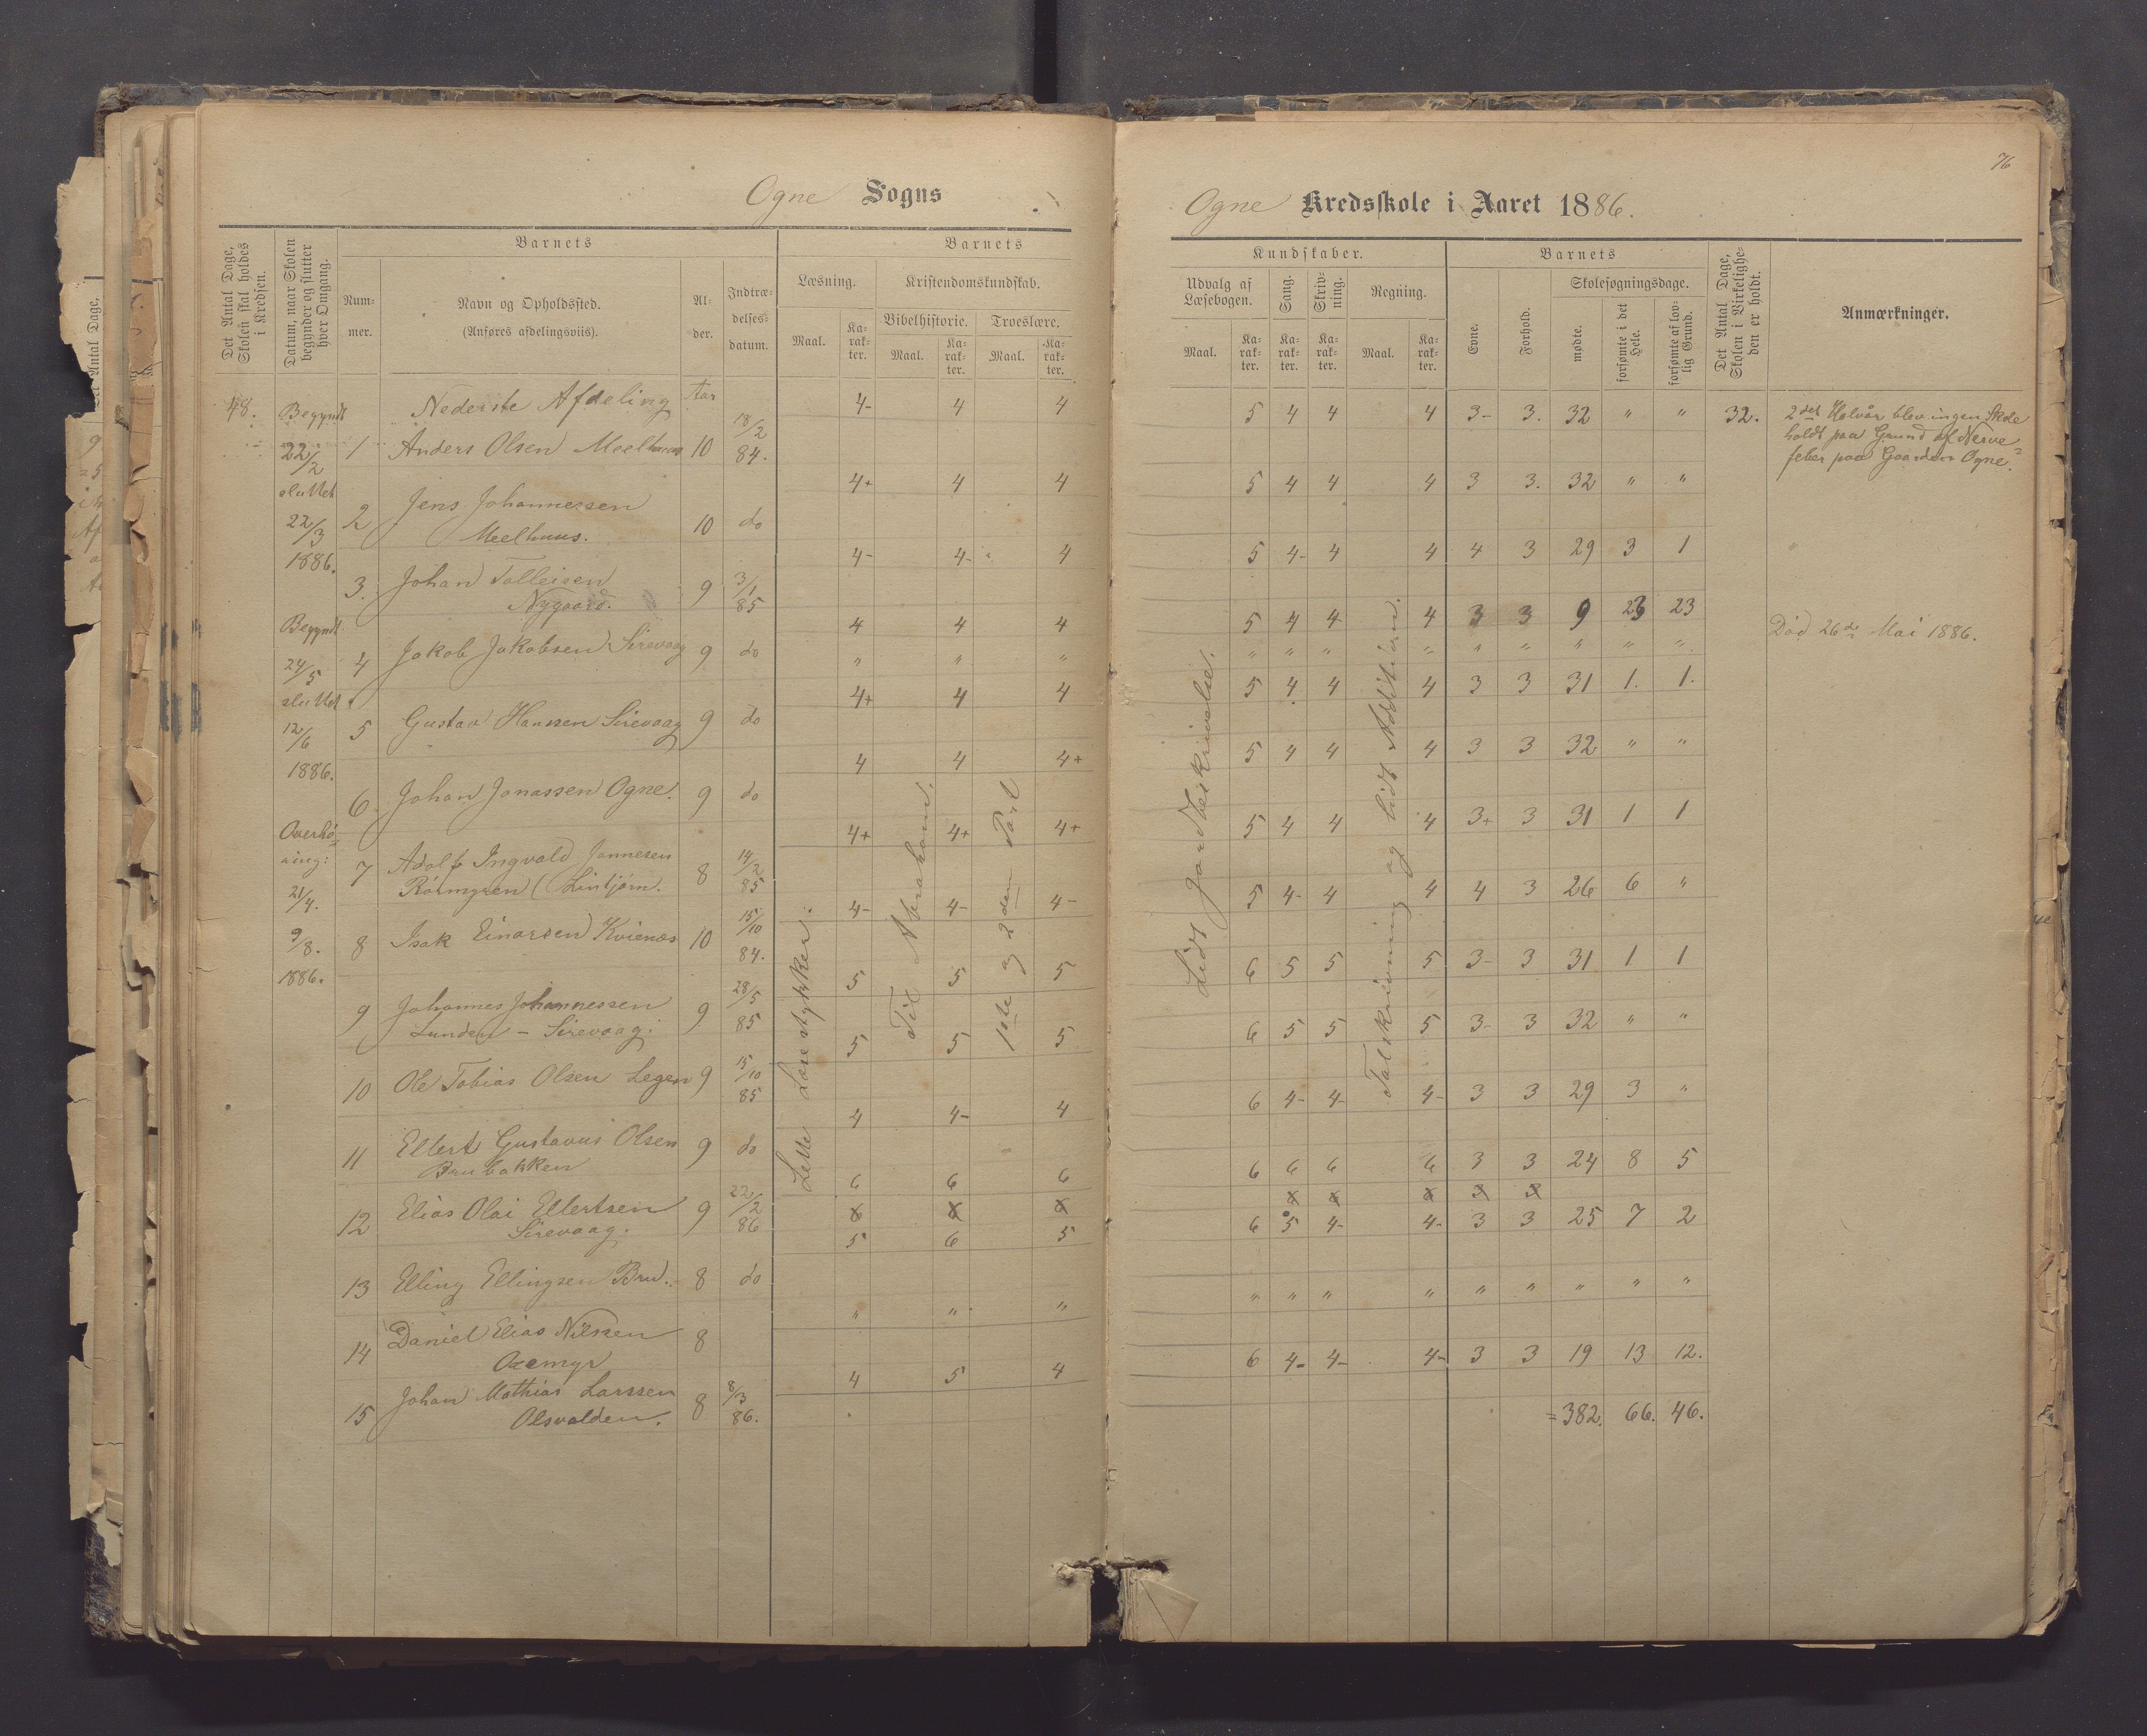 76
Ogne Sogns
Ogne Kredsskole i Aaret 1886.
Det Antal Dage, Skolen skal holdes i Kredsen.
Datum, naar Skolen begynder og slutter hver Omgang.
Barnets
Nummer.
Navn og Opholdssted.
(Anføres afdelingsviis).
Alder.
Indtrædelsesdatum.
Barnets
Læsning.
Maal.
Karakter.
Kristendomskundskab.
Bibelhistorie.
Maal.
Karakter.
Troeslære.
Maal.
Karakter.
Kundskaber.
Udvalg af Læsebogen.
Maal.
Karakter.
Sang.
Karakter.
Skrivning.
Karakter.
Regning.
Maal.
Karakter.
Barnets
Evne.
Forhold.
Skolesøgningsdage.
mødte.
forsømte i det Hele.
forsømte af lovlig Grund.
Det Antal Dage, Skolen i Virkeligheden er holdt.
Anmærkninger.
48.
Begyndt
22/2
sluttet
22/3
1886.
Begyndt
24/5
sluttet
12/6
1886.
Overhø-
ring:
21/4.
9/8.
1886.
Nederste Afdeling Aar
1 Anders Olsen Meelhuus 10 18/2 84. 4- 4 4 5 4 4 4 3- 3. 32 " " 32.
2det Halvår blev ingen Skole
holdt paa Grund af Nerve-
feber paa Gaarden Ogne.
2 Jens Johannessen
Meelhuus. 10 do 4+ 4 4 5 4 4 4 3 3. 32 " "
3. Johan Talleisen
Nygaard. 9 3/1 85 4- 4- 4 5 4- 4 4 4 3 29 3 1
4 Jakob Jakobsen Sirevaag 9 do 4 4 4 5 4 4 4 3 3 9 23 23
Død 26de Mai 1886.
" " " " " " " " " " " "
5 Gustav Hanssen Sirevaag 9 do 4+ 4 4 5 4 4 4 3 3 31 1. 1.
6 Johan Jonassen Ogne. 9 do 4 4 4+ 5 4 4 4 3 3 32 " "
7 Adolf Ingvald Jonnesen
Rørmyren (Lintjørn. 8 14/2 85 4+ 4+ 4+ 5 4 4 4 3+ 3 31 1 1
8 Isak Einarsen Kvienes 10 15/10 84. 4- 4- 4- 5 4- 4 4 4 3 26 6 "
9 Johannes Johannessen
Lunden - Sirevaag. 9 28/5 85 5 5 5 6 5 5 5 3- 3 31 1 1
10 Ole Tobias Olsen Legen 9 15/10 85 5 5 5 6 5 5 5 3- 3 32 " "
11 Ellert Gustavus Olsen
Brubakken 9 do 4 4- 4 6 4- 4- 4- 3 3 29 3 "
12 Elias Olai Ellertsen
Sirevaag. 9 22/2 86 6 6 6 6 6 6 6 3 3 24 8 5
13 Elling Ellingsen Bru. 8 do 5 6 5 6 5 4- 4- 3 3 25 7 2
14 Daniel Elias Nilsen
Oxemyr 8 " " " " " " " " " " " "
15 Johan Mathias Larssen
Olsvalden. 8 8/3 86. 4 5 4 6 4- 4- 4- 3 3 19 13 12.
= 382. 66. 46.
Lette Læsestykker.
Til Abraham.
1ste og 2den Part
Lidt Jordbeskrivelse.
Talskrivning og lidt Addition.